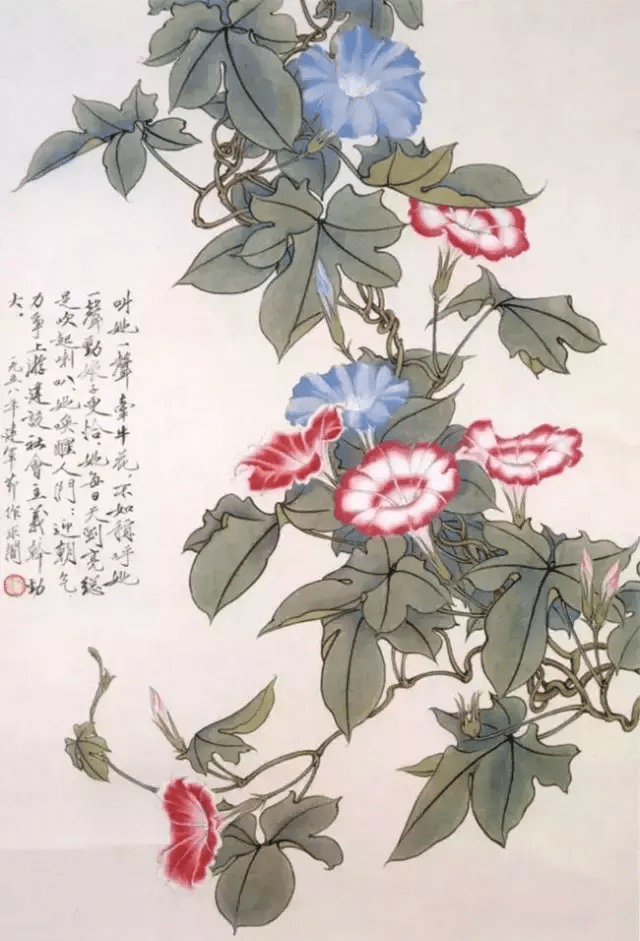 叫她一聲牽牛花，不如稱呼她
一聲勤娘子更恰：她每日天剛亮總
是吹起喇叭，她喚醒人們：迎朝气，
力爭上游建設社會主義幹劲
大、
一九五八年建軍节作